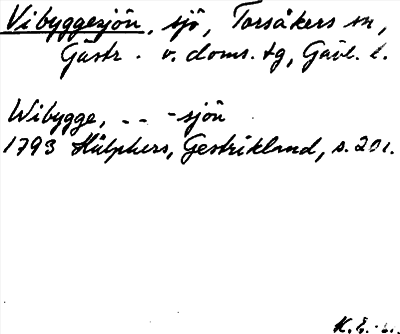 Vibyggesjön, sjö, Torsåkers sn,
Gästr. v. doms. tg, Gävl. l.
Wibygge, - - -sjön
1793 Hülphers, Gestrikland, s. 201.
K.E.